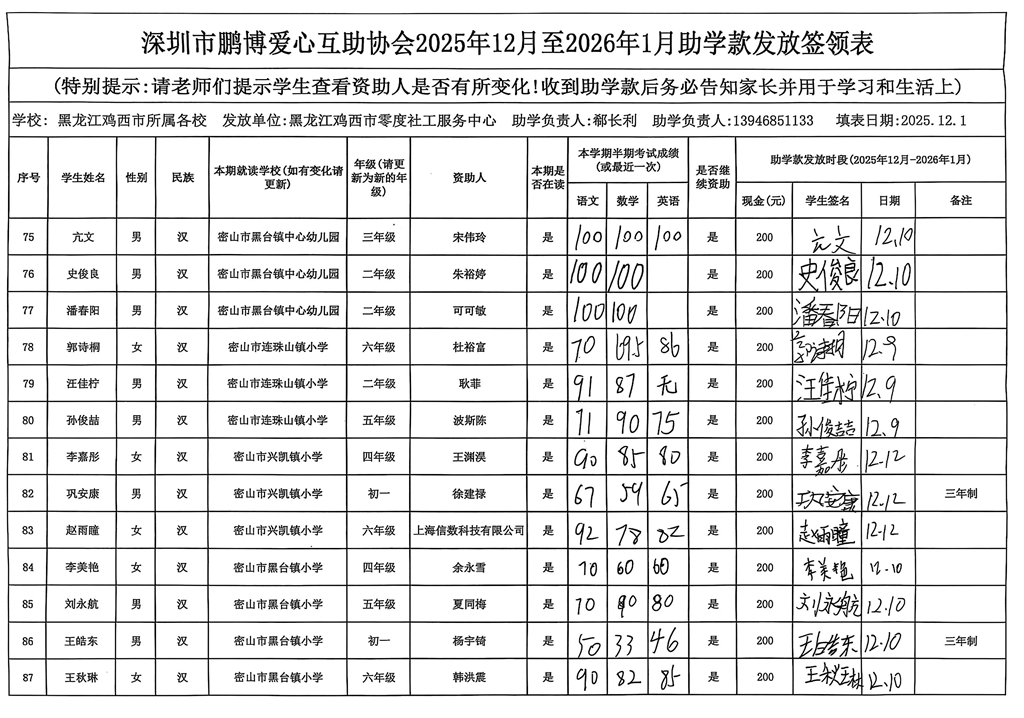 深圳市鹏博爱心互助协会2025年12月至2026年1月助学款发放签领表
(特别提示:请老师们提示学生查看资助人是否有所变化!收到助学款后务必告知家长并用于学习和生活上)
学校: 黑龙江鸡西市所属各校 发放单位:黑龙江鸡西市零度社工服务中心 助学负责人:郗长利 助学负责人:13946851133 填表日期:2025.12.1
序号 学生姓名 性别 民族 本期就读学校(如有变化请更新) 年级(请更新为新的年级) 资助人 本期是否在读 本学期半期考试成绩(或最近一次) 是否继续资助 助学款发放时段(2025年12月-2026年1月)
语文 数学 英语 现金(元) 学生签名 日期 备注
75 亢文 男 汉 密山市黑台镇中心幼儿园 三年级 宋伟玲 是 100 100 100 是 200 亢文 12.10
76 史俊良 男 汉 密山市黑台镇中心幼儿园 二年级 朱裕婷 是 100 100 是 200 史俊良 12.10
77 潘春阳 男 汉 密山市黑台镇中心幼儿园 二年级 可可敏 是 100 100 是 200 潘春阳 12.10
78 郭诗桐 女 汉 密山市连珠山镇小学 六年级 杜裕富 是 70 69.5 86 是 200 郭诗桐 12.9
79 汪佳柠 男 汉 密山市连珠山镇小学 二年级 耿菲 是 91 87 无 是 200 汪佳柠 12.9
80 孙俊喆 男 汉 密山市连珠山镇小学 五年级 波斯陈 是 71 90 75 是 200 孙俊喆 12.9
81 李嘉彤 女 汉 密山市兴凯镇小学 四年级 王渊淏 是 90 85 80 是 200 李嘉彤 12.12
82 巩安康 男 汉 密山市兴凯镇小学 初一 徐建禄 是 67 59 65 是 200 巩安康 12.12 三年制
83 赵雨瞳 女 汉 密山市兴凯镇小学 六年级 上海信数科技有限公司 是 92 78 82 是 200 赵雨瞳 12.12
84 李美艳 女 汉 密山市黑台镇小学 四年级 余永雪 是 70 60 60 是 200 李美艳 12.10
85 刘永航 男 汉 密山市黑台镇小学 五年级 夏同梅 是 70 90 80 是 200 刘永航 12.10
86 王皓东 男 汉 密山市黑台镇小学 初一 杨宇锜 是 50 33 46 是 200 王皓东 12.10 三年制
87 王秋琳 女 汉 密山市黑台镇小学 六年级 韩洪震 是 90 82 85 是 200 王秋琳 12.10